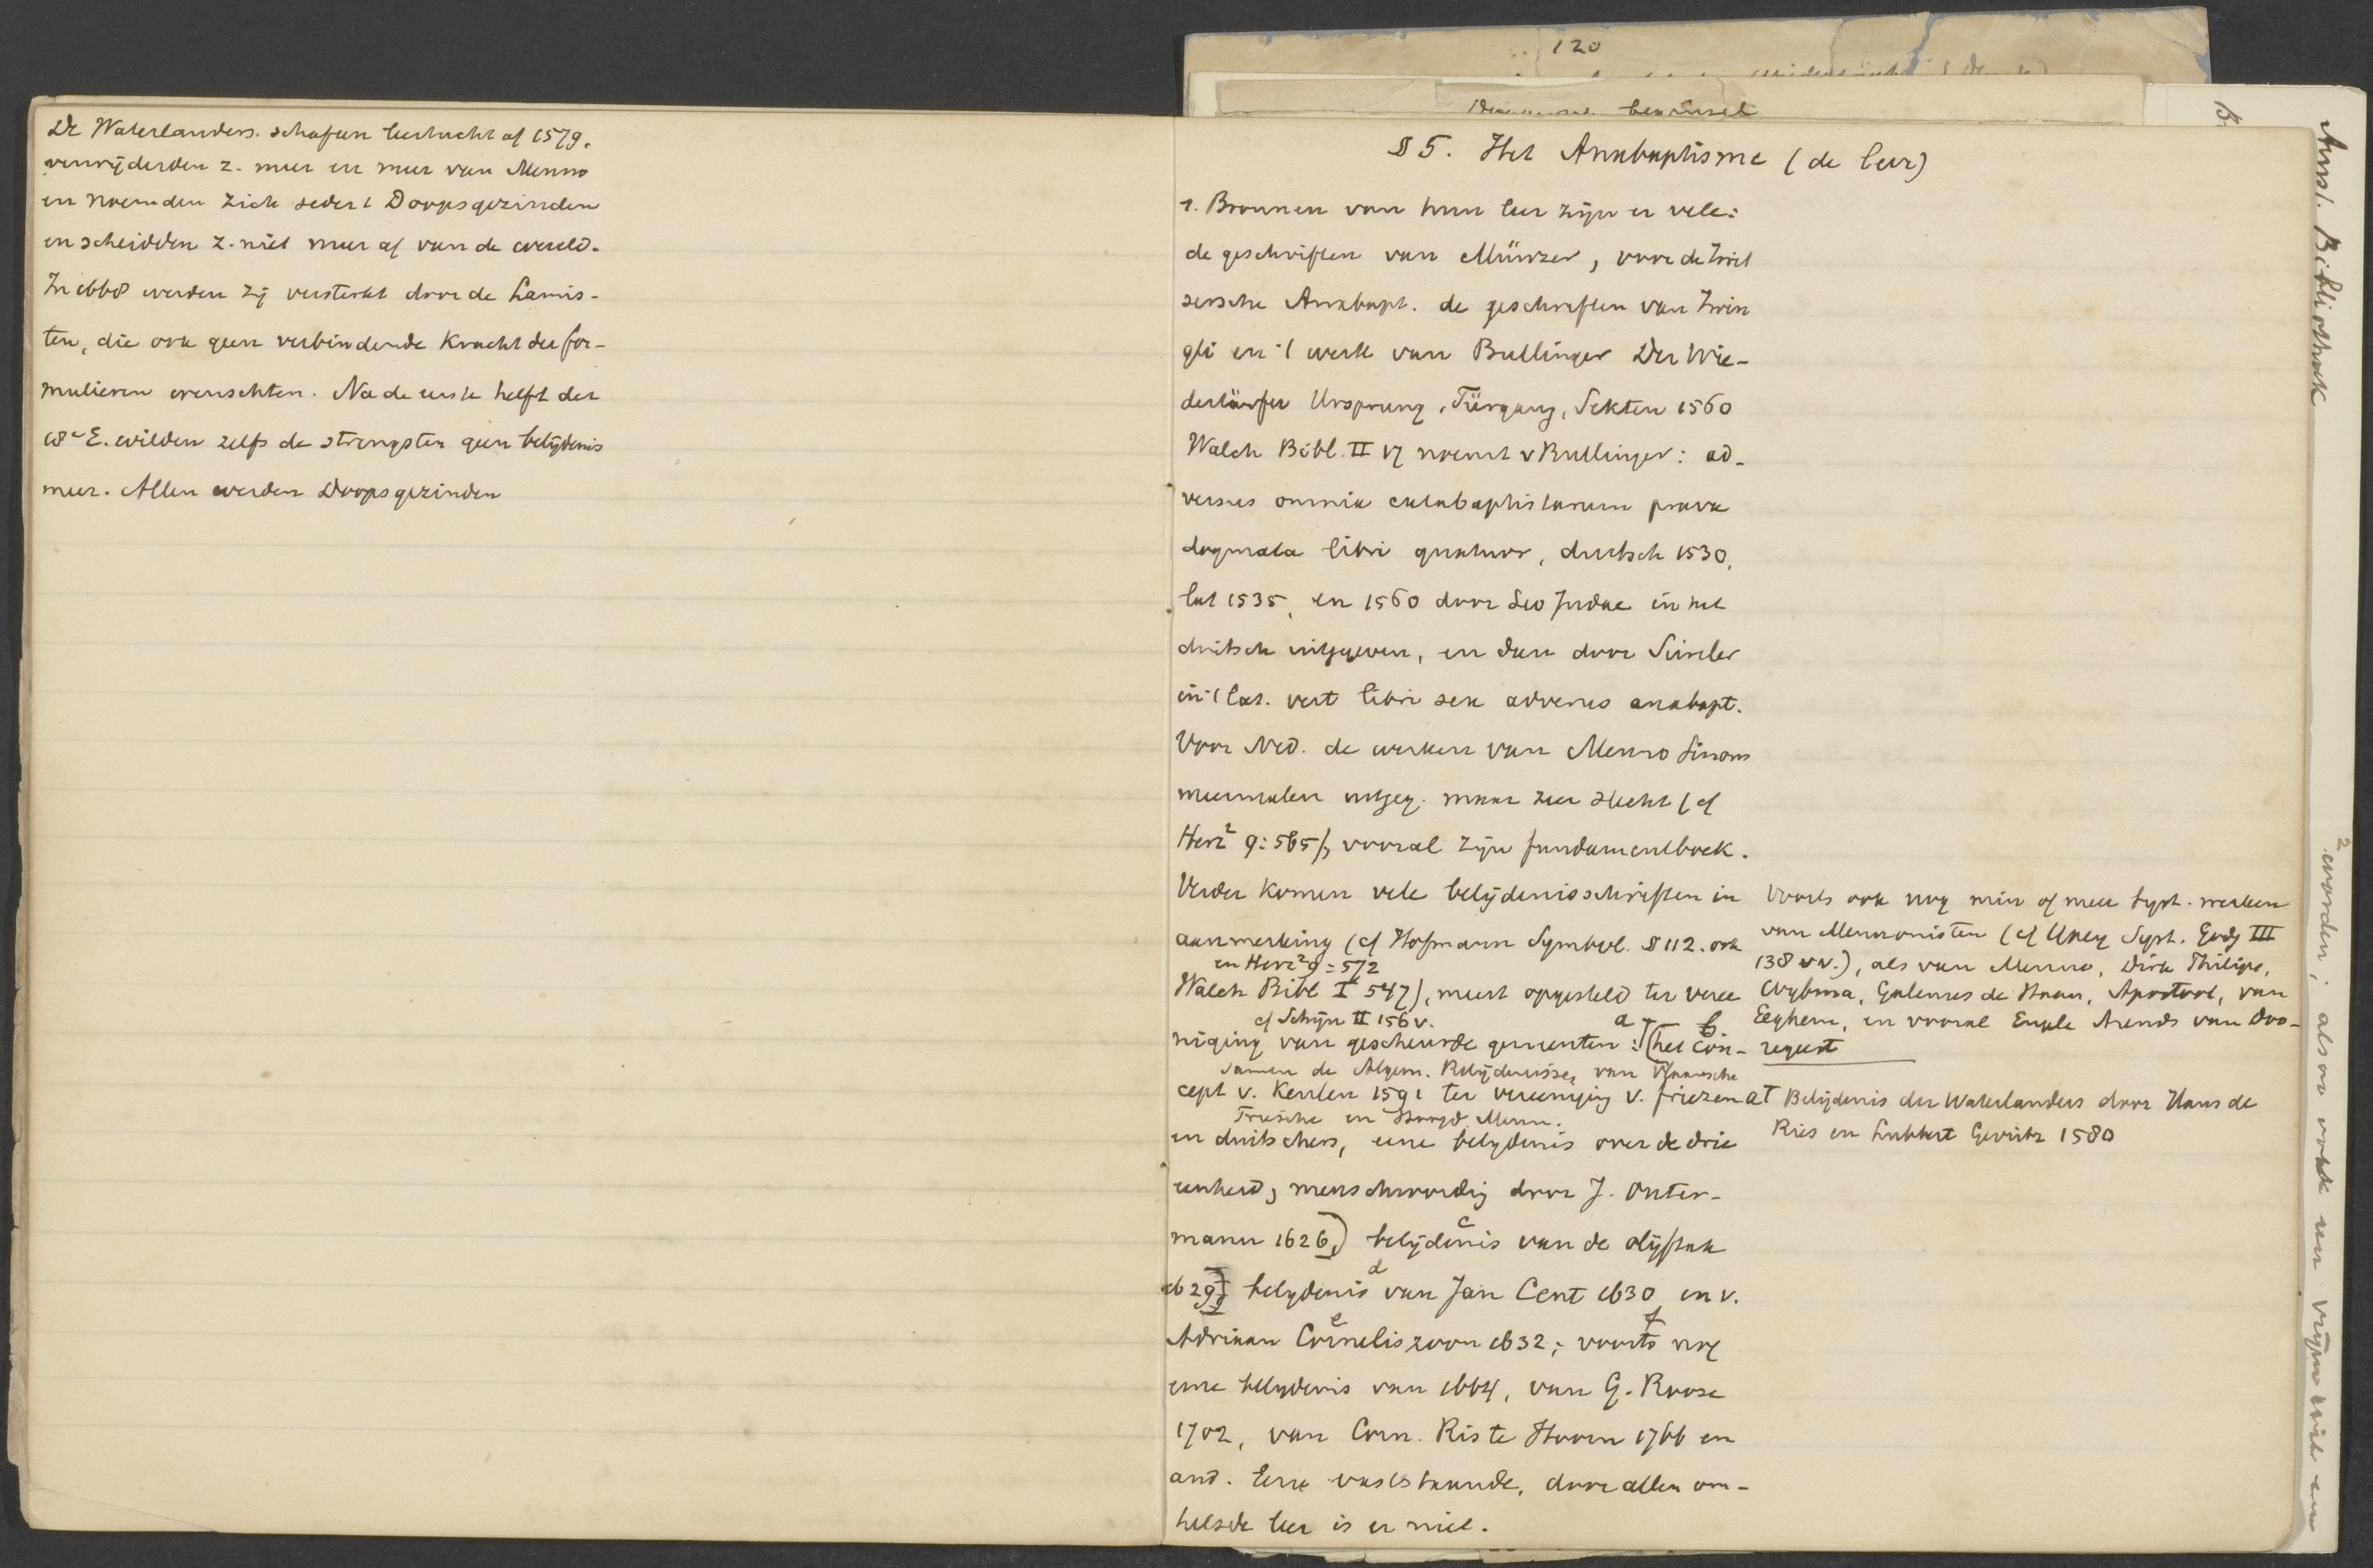 De Waterlanders. schafen leertucht af 1579.
verwijderden z. meer en meer van Menno
en noemden zich sedert Doopsgezinden
en scheidden z. niet meer af van de wereld.
In 1668 werden zij versterkt door de Lamis-
ten, die ook geen verbindende kracht der for-
mulieren wenschten. Na de eerste helft der
18e E. wilden zelfs de strengsten geen belijdenis
meer. Allen werden Doopsgezinden
120
§ 5. Het Anabaptisme (de leer)
1. Bronnen van hun leer zijn er vele:
de geschriften van Münzer, voor de Zwit
sersche Anabapt. de geschriften van Zwin
gli en 't werk van Bullinger Der Wie-
dertäufer Ursprung, Fürgang, Sekten 1560
Walch Bibl. II 17 noemt v Bullinger: ad-
versus omnia catabaptistarum prava
dogmata libri quatuor, duitsch 1530,
lat 1535, en 1560 door Leo Judae in het
duitsch uitgegeven, en dan door Simler
in 't lat. vert libri sex adversus anabapt.
Voor Ned. de werken van Menno Simons
meermalen uitgeg. maar zeer slecht (cf
Herz² 9:565), vooral zijn fundamentboek.
Verder komen vele belijdenisschriften in
aanmerking (cf Hofmann Symbol. § 112. ook
en Herz² 9:572
Walch Bibl I 547), meest opgesteld ter veree
cf Schijn II 156 v. a b.
niging van gescheurde gemeenten: (het con-
Samen de Algem. Belijdenisse, van Vlaamsche
cept v. Keulen 1591 ter vereeniging v. friezen
Friesche en Hoogd. Menn.
en duitschers, eene belydenis over de drie
eenheid, menschwording door J. Outer-
mann 1626,) belijdenis van de olijftak
c
1629, belydenis van Jan Cent 1630 en v.
d
Adriaan Corneliszoon 1632; voorts nog
e f
eene belydenis van 1664, van G. Roosen
1702, van Corn. Ris te Hoorn 1766 en
and. Eene vaststaande, door allen om-
helsde leer is er niet.
Voorts ook nog min of meer syst. werken
van Mennonisten (cf Ypey Syst. Godg III
138 vv.), als van Menno, Dirk Philips,
Wybma, Galenus de Haan, Apostool, van
Eeghem, en vooral Engele Arends van Doo-
regeest
a Belijdenis der Waterlanders door Hans de
Ries en Lubbert Gerritz 1580
Amst. Bibliotheek
worden; alsoo ook een vrijen wil en